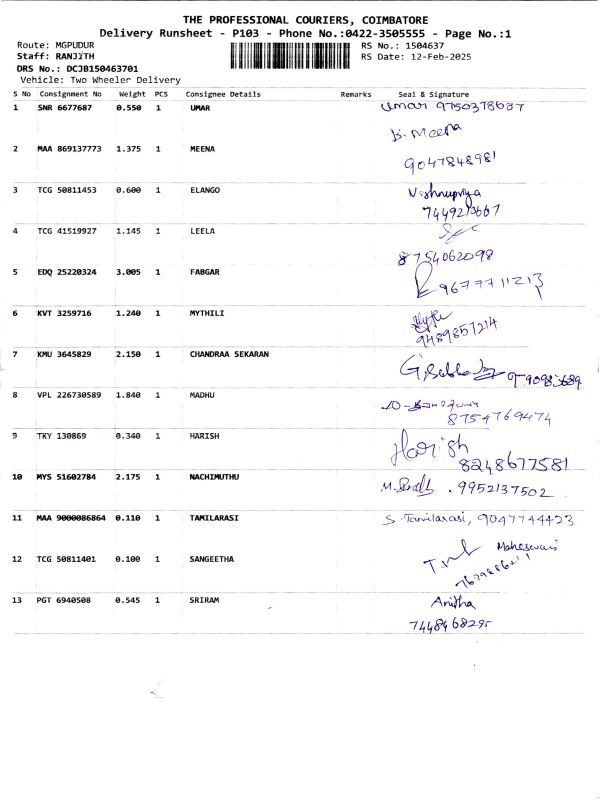 THE PROFESSIONAL COURIERS, COIMBATORE
Delivery Runsheet - P103 - Phone No.:0422-3505555 - Page No.:1
Route: MGPUDUR RS No.: 1504637
Staff: RANJITH RS Date: 12-Feb-2025
DRS No.: DCJB150463701
Vehicle: Two Wheeler Delivery
S No Consignment No Weight PCS Consignee Details Remarks Seal & Signature
1 SNR 6677687 0.550 1 UMAR Umar 9750378687
B. Meena
2 MAA 869137773 1.375 1 MEENA
9047848981
3 TCG 50811453 0.600 1 ELANGO Vishnupriya
7449213667
4 TCG 41519927 1.145 1 LEELA
8754062098
5 EDQ 25220324 3.005 1 FABGAR
9677711213
6 KVT 3259716 1.240 1 MYTHILI
9489857214
7 KMU 3645829 2.150 1 CHANDRAA SEKARAN
8 VPL 226730589 1.840 1 MADHU
8754769474
9 TKY 130869 0.340 1 HARISH Harish
8248677581
10 MYS 51602784 2.175 1 NACHIMUTHU 9952137502
11 MAA 9000086864 0.110 1 TAMILARASI S. Tamilarasi, 9047744423
12 TCG 50811401 0.100 1 SANGEETHA Maheswari
13 PGT 6940508 0.545 1 SRIRAM Anitha
7448468295